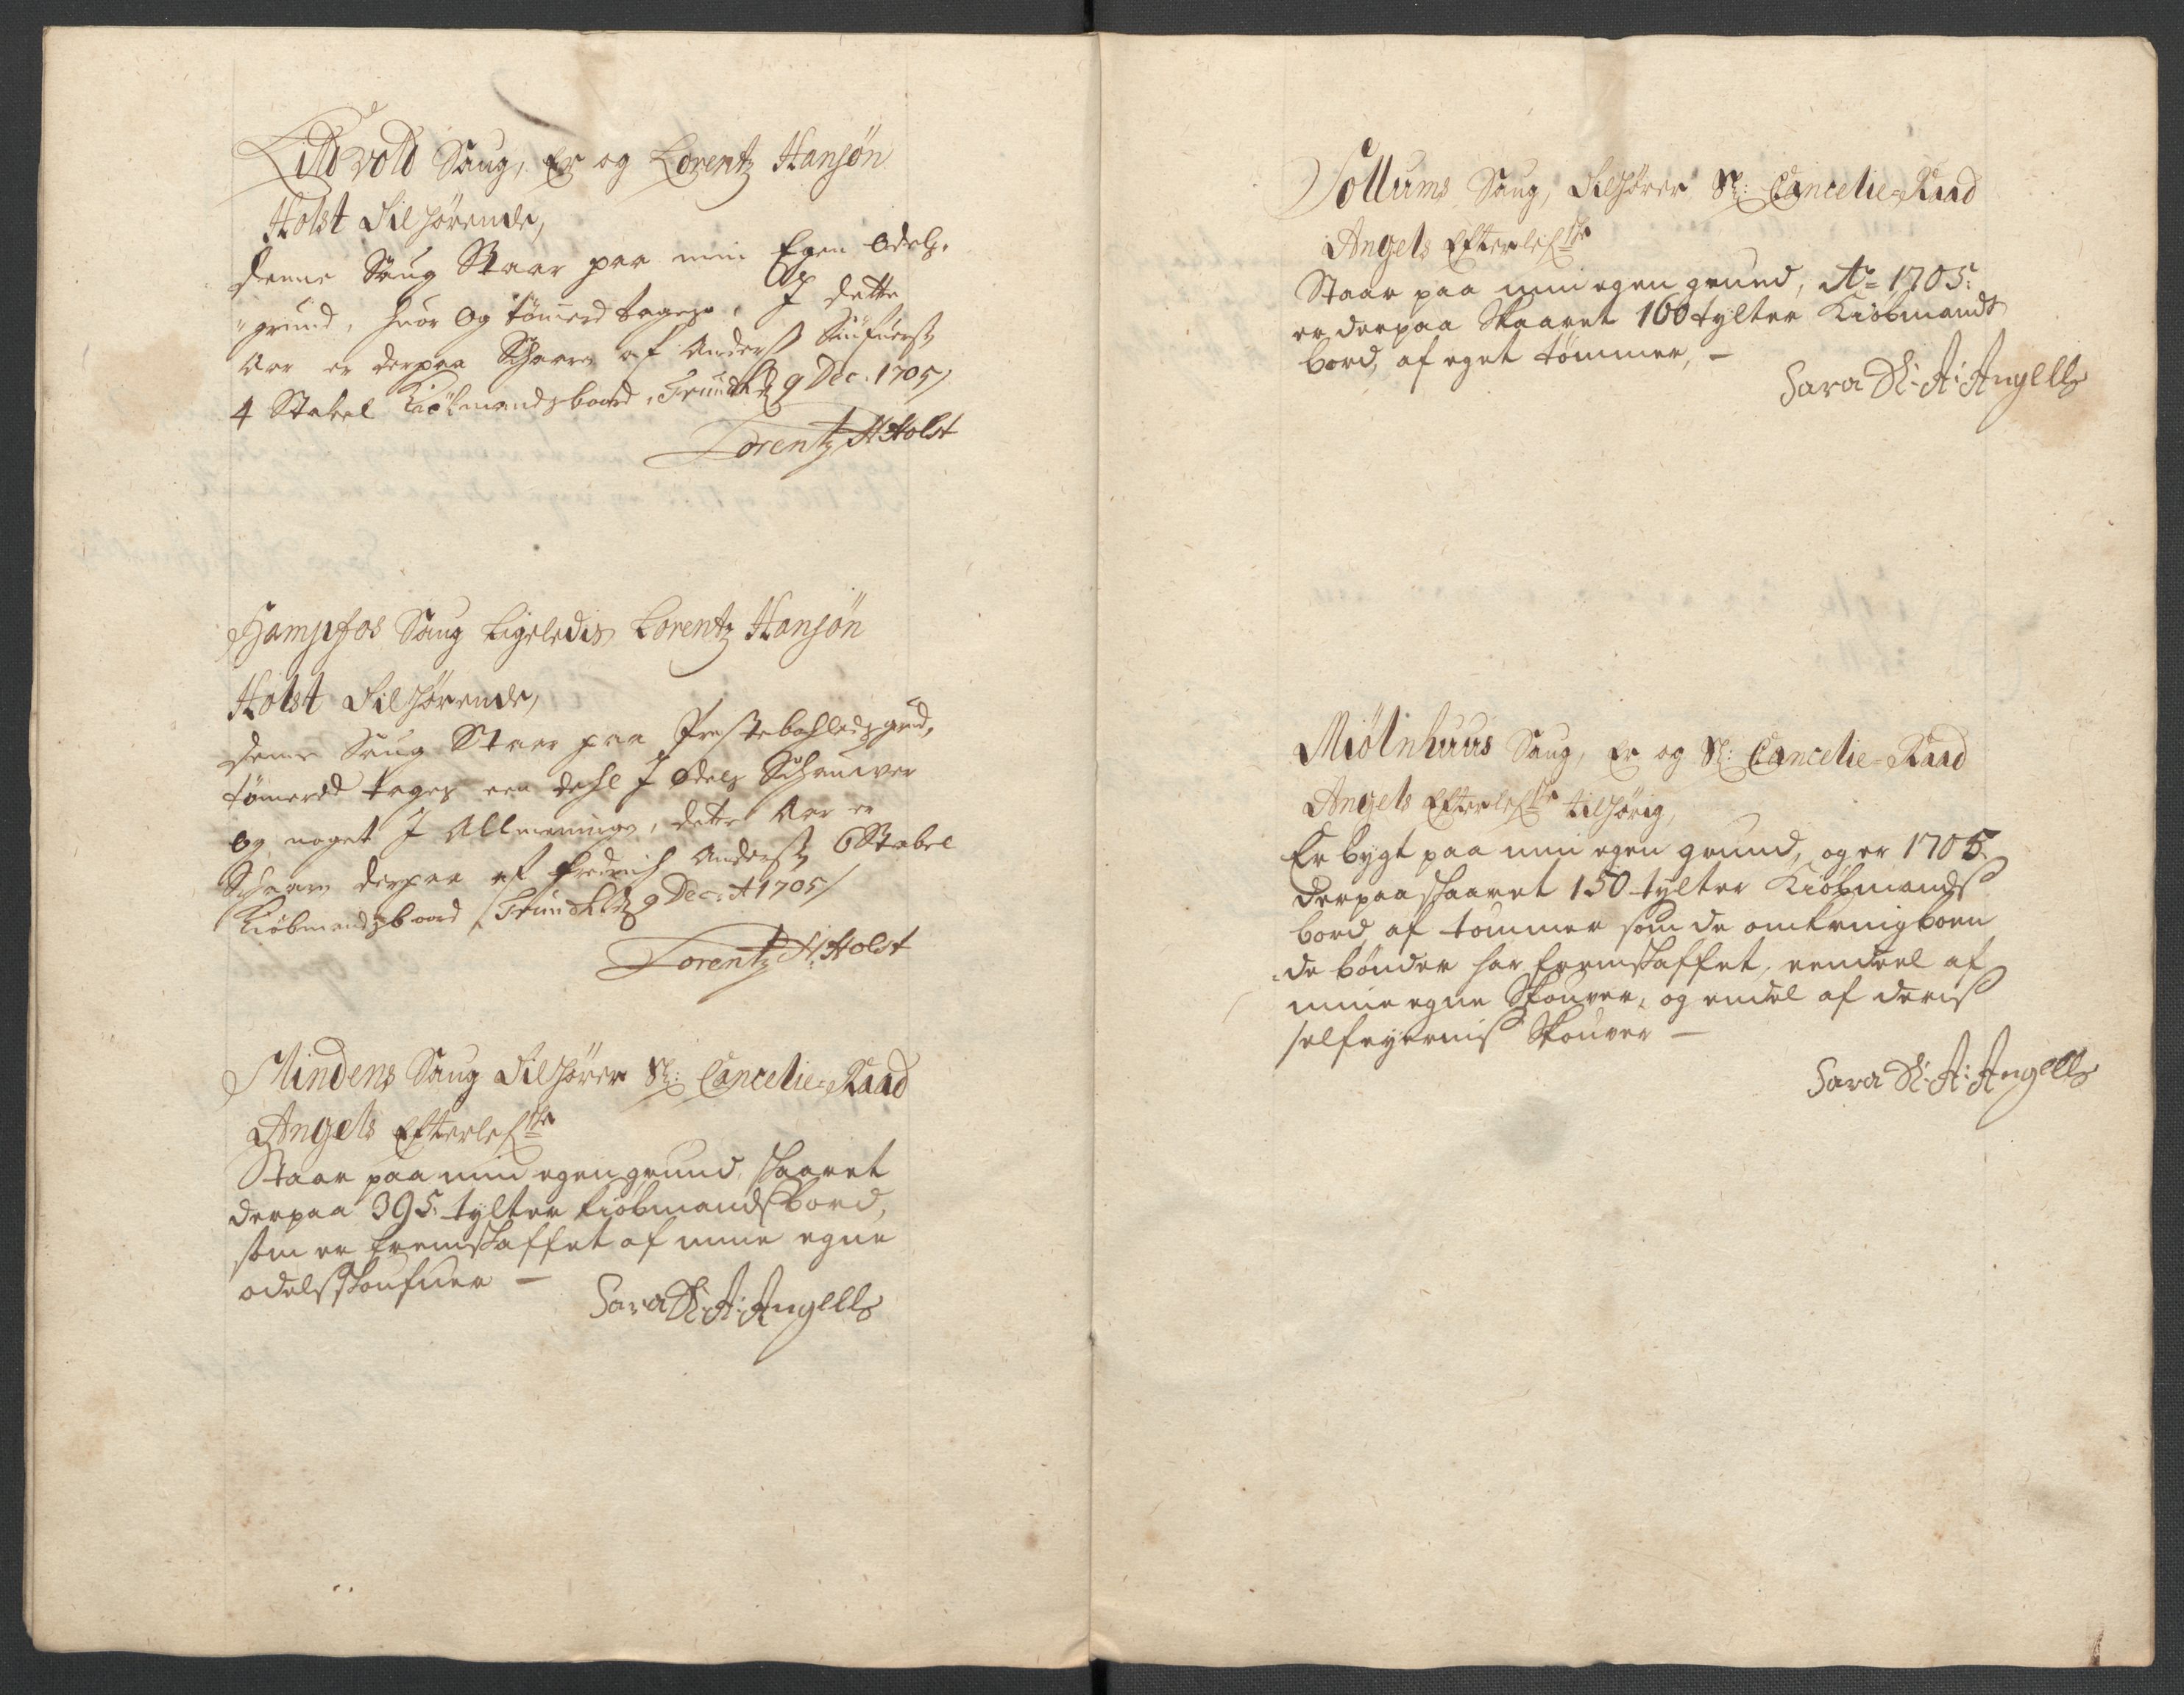 Lidvold Saug, Er og Lorentz Hansøn
Holst Tilhørende,
denne Saug Staar paa min Egen Odels
grund, huor og tømerd tages, I dette
Aar er derpaa Schaaren af Anderß
4 Stabel Kiøbmandsbord, Trundh: d 9 Dec: 1705/
Lorentz H Holst
Hampfos Saug Ligeledis Lorentz Hansøn
Holst Tilhørende,
denne Saug Staar paa Prestebohledsgrnd,
tømered tages een dehl I Odels Schauver
og noget I Allmeninge, dette Aar er
Schaaren derpaa af Fredrich Anderß 6 Stabel
Kiøbmandsbord Trundh: d 9 Dec: A 1705/
Lorentz H: Holst
Mindens Saug Tilhører Sl: Cancelie-Raad
Angels Efterlefske
Staar paa min egen grund, skaaret
derpaa 395 tylter kiøbmandsbord,
som er fremskaffet af mine egne
odelsskoufuer –
Sara Sl: A: Angells
Sollums Saug, Tilhører Sl: Cancelie-Raad
Angels Efterlefske
Staar paa min egen grund, Ao 1705:
er derpaa Skaaret 160 tylter Kiøbmands
bord, af eget tømmer, –
Sara Sl: A: Angells
Miölnhuus Saug, Er og Sl: Cancelie-Raad
Angels Efterlefske tilhørig,
Er bygt paa min egen grund, og er 1705.
derpaa skaaret 150 tylter Kiøbmands
bord af tømmer som de omkringboen
de bønder har fremskaffet, eendeel af
mine egne Skouver, og endel af deris
selfeyernis Skouver –
Sara Sl: A: Angells